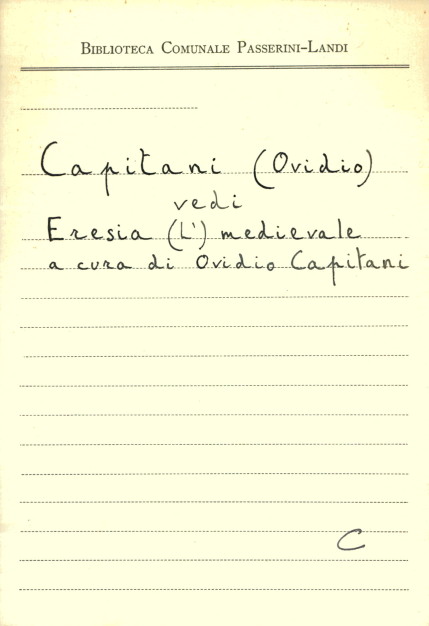 Biblioteca Comunale Passerini-Landi
Capitani (Ovidio)
vedi
Eresia (L') medievale
a cura di Ovidio Capitani
C